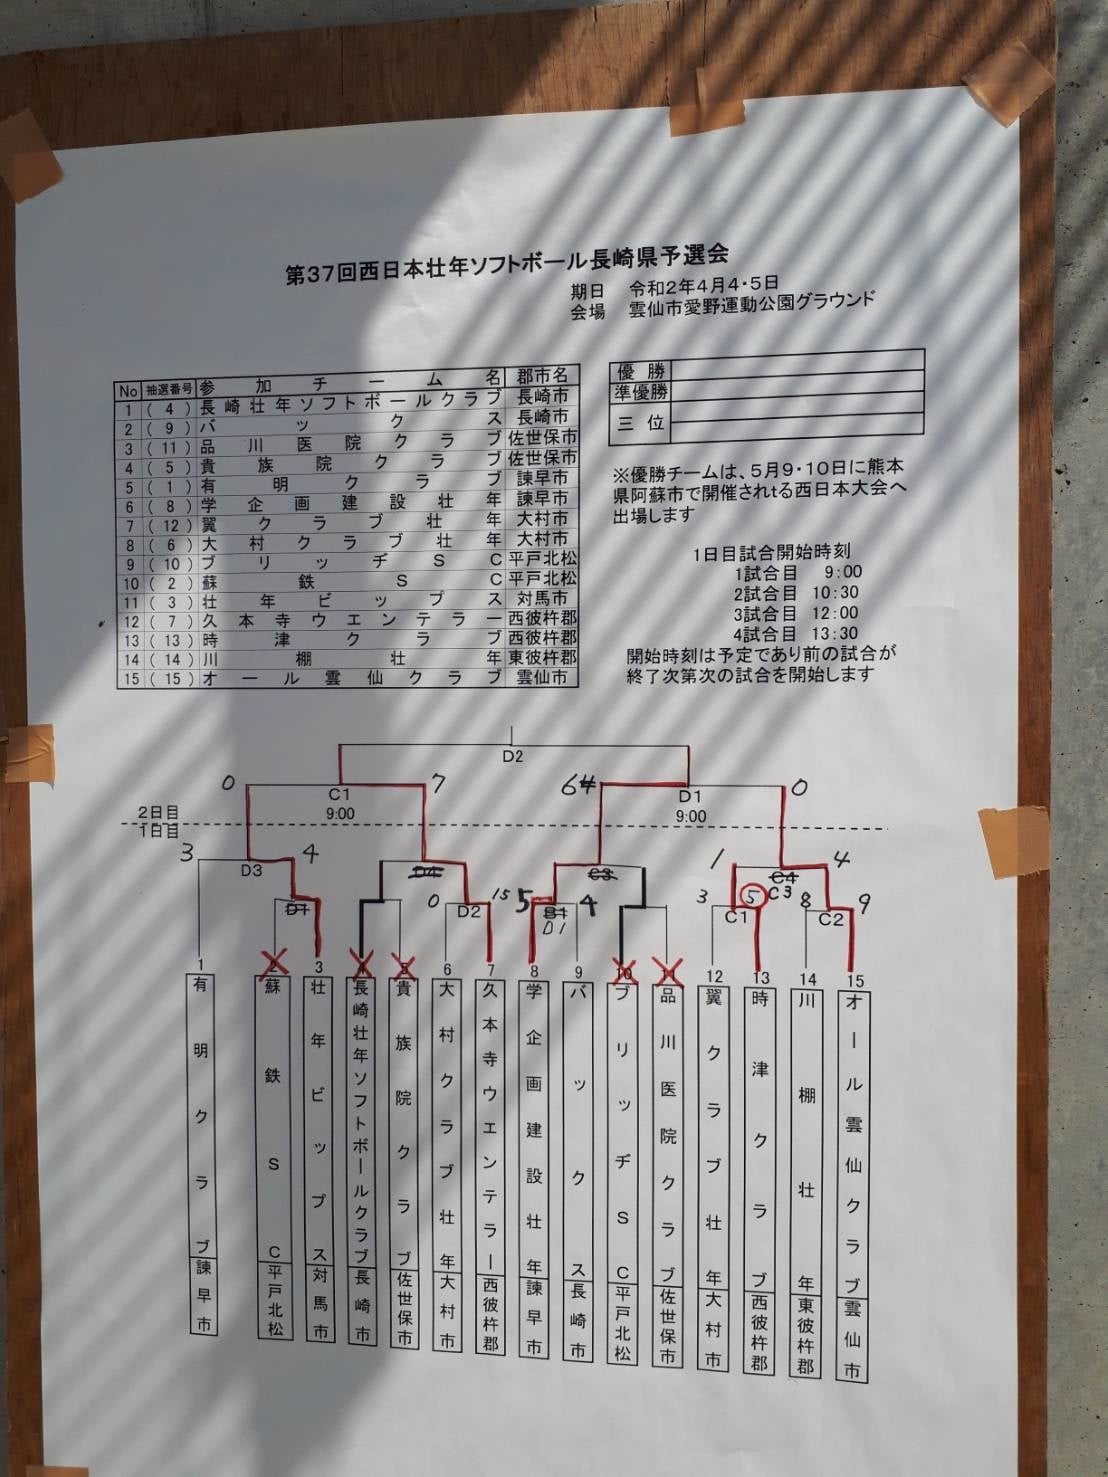 第37回西日本壮年ソフトボール長崎県予選会
期日 令和2年4月4・5日
会場 雲仙市愛野運動公園グラウンド
No 抽選番号 参加チーム名 郡市名
1 (4) 長崎壮年ソフトボールクラブ 長崎市
2 (9) バックス 長崎市
3 (11) 品川医院クラブ 佐世保市
4 (5) 貴族院クラブ 佐世保市
5 (1) 有明クラブ 諫早市
6 (8) 学企画建設壮年 諫早市
7 (12) 翼クラブ壮年 大村市
8 (6) 大村クラブ壮年 大村市
9 (10) ブリッヂSC 平戸北松
10 (2) 蘇鉄SC 平戸北松
11 (3) 壮年ビップス 対馬市
12 (7) 久本寺ウエンテラー 西彼杵郡
13 (13) 時津クラブ 西彼杵郡
14 (14) 川棚壮年 東彼杵郡
15 (15) オール雲仙クラブ 雲仙市
優勝
準優勝
三位
※優勝チームは、5月9・10日に熊本
県阿蘇市で開催されtる西日本大会へ
出場します
1日目試合開始時刻
1試合目 9:00
2試合目 10:30
3試合目 12:00
4試合目 13:30
開始時刻は予定であり前の試合が
終了次第次の試合を開始します
D2
0 C1 7 6 D1 0
2日目 9:00 9:00
1日目
3 D3 4 D4 C3 1 C4 4
D1 0 D2 15 5 B1 4 3 C1 5 C3 8 C2 9
D1
1 2 3 4 5 6 7 8 9 10 11 12 13 14 15
有明クラブ 諫早市
蘇鉄SC 平戸北松
壮年ビップス 対馬市
長崎壮年ソフトボールクラブ 長崎市
貴族院クラブ 佐世保市
大村クラブ壮年 大村市
久本寺ウエンテラー 西彼杵郡
学企画建設壮年 諫早市
バックス 長崎市
ブリッヂSC 平戸北松
品川医院クラブ 佐世保市
翼クラブ壮年 大村市
時津クラブ 西彼杵郡
川棚壮年 東彼杵郡
オール雲仙クラブ 雲仙市